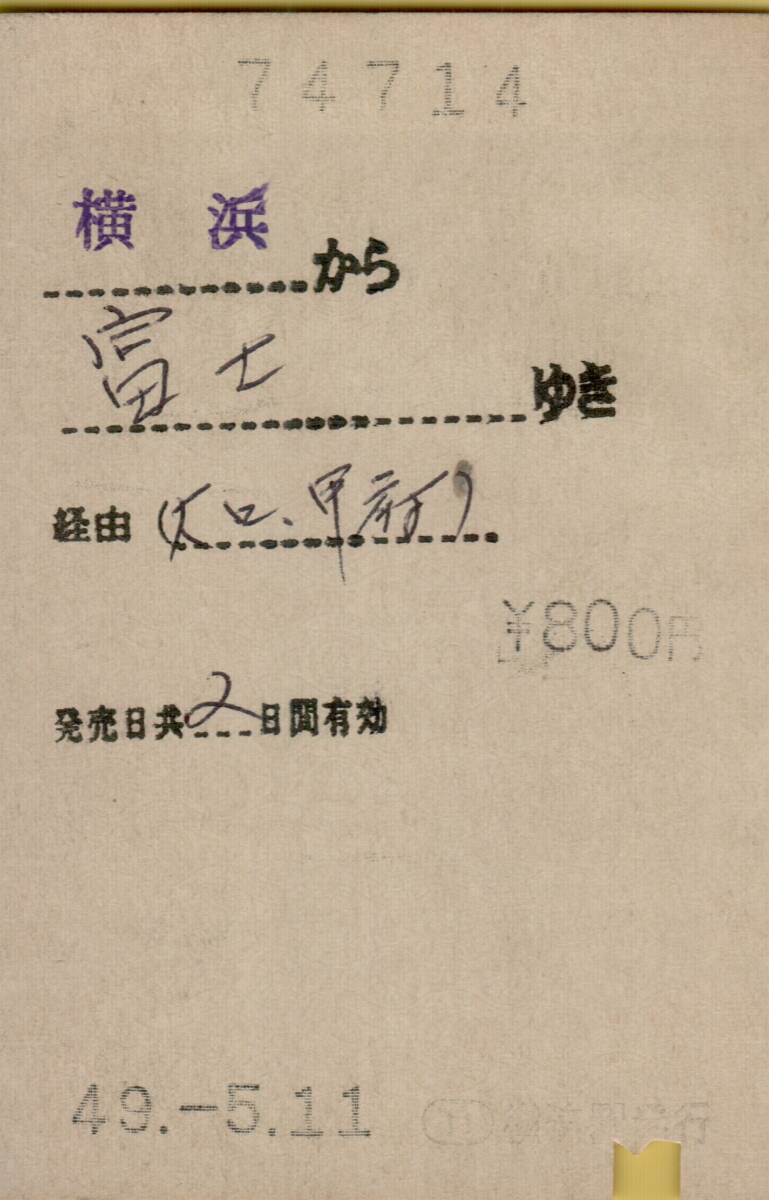 74714
横浜から
富士ゆき
経由(大口、甲府)
¥800円
発売日共2日間有効
49.-5.11